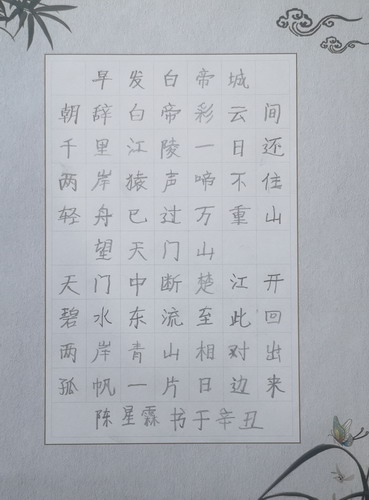 早发白帝城
朝辞白帝彩云间
千里江陵一日还
两岸猿声啼不住
轻舟已过万重山
望天门山
天门中断楚江开
碧水东流至此回
两岸青山相对出
孤帆一片日边来
陈星霖书于辛丑